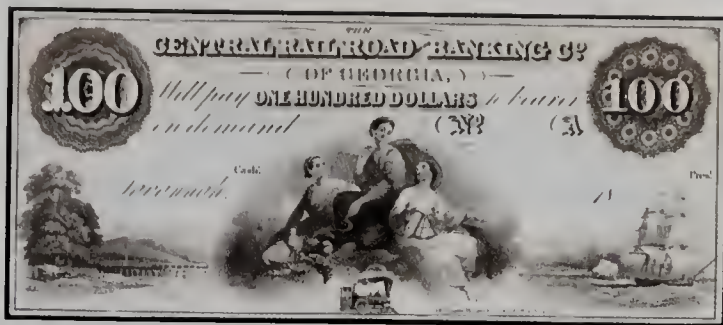 THE
CENTRAL RAIL ROAD & BANKING Co
( OF GEORGIA, )
100 Will pay ONE HUNDRED DOLLARS to bearer 100
on demand ( No ( A
Cash! Pres!
Savannah, 18